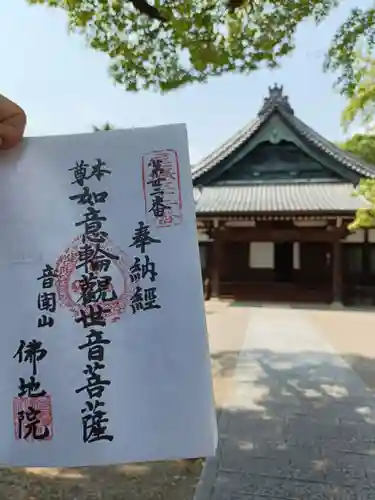 第廿二番
奉納經
本尊
如意輪觀世音菩薩
音聞山
佛地院